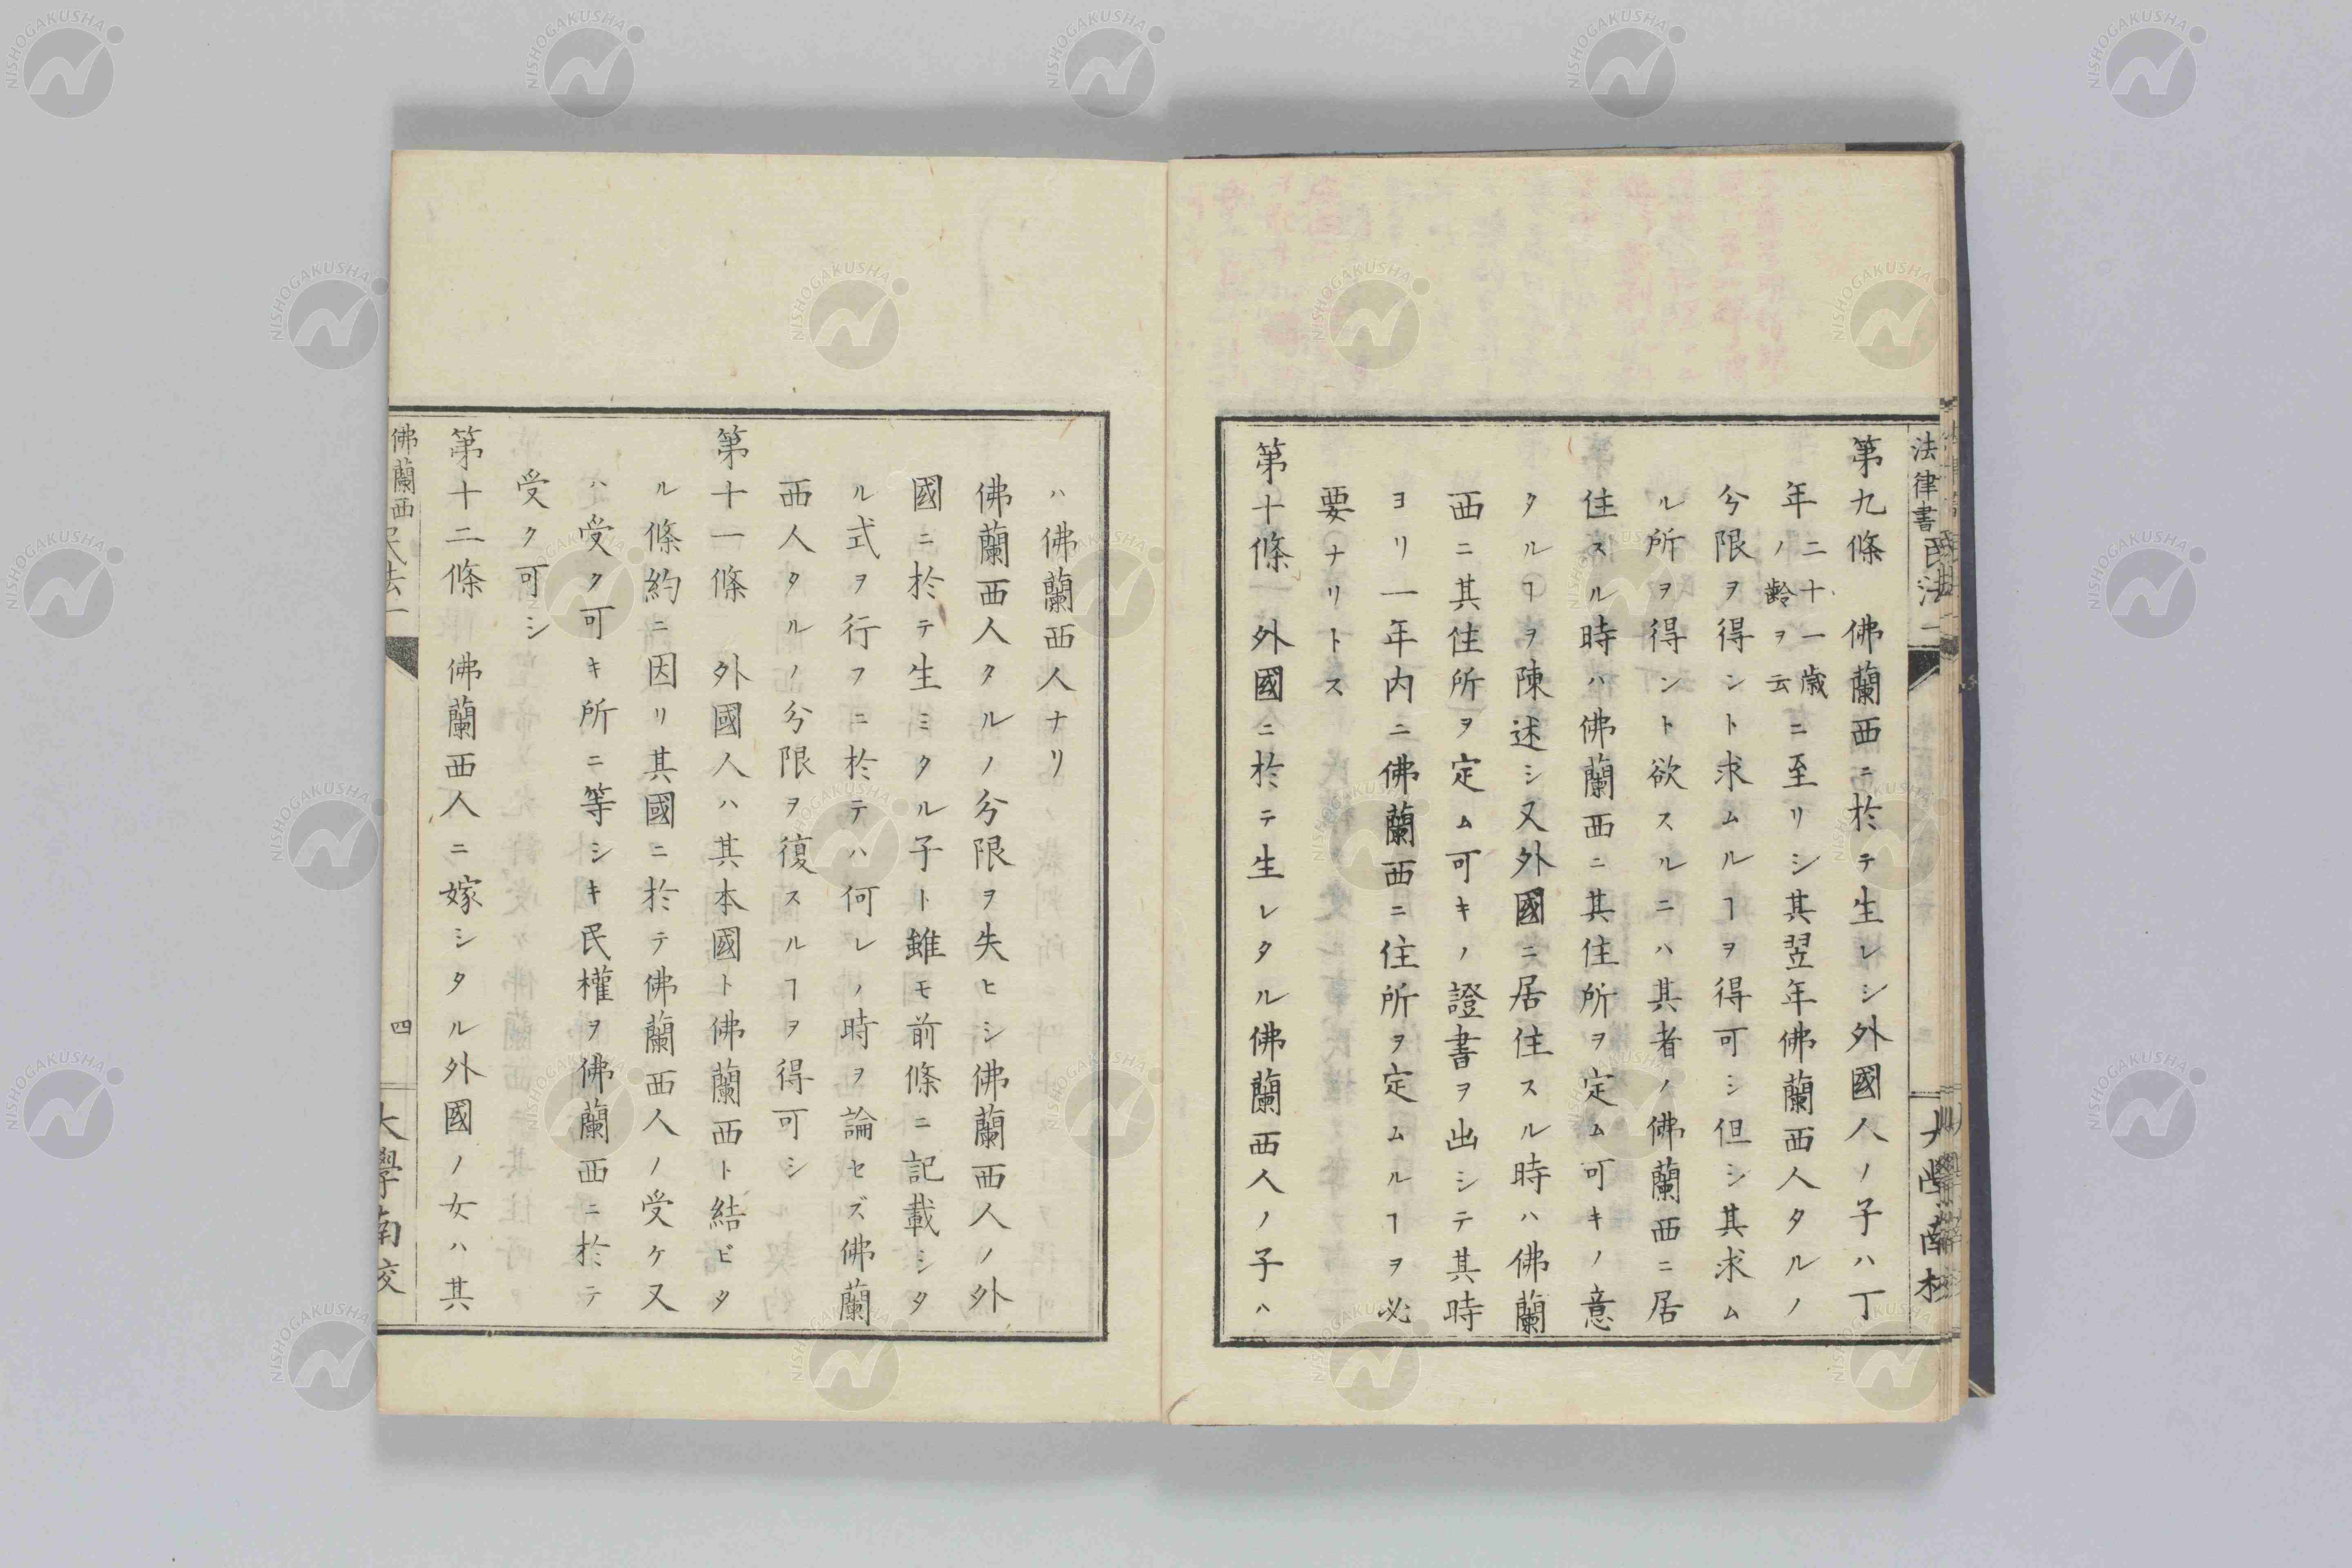 法律書 民法一
第九條 佛蘭西ニ於テ生レシ外國人ノ子ハ丁
年二十一歳ノ齢ヲ云ニ至リシ其翌年佛蘭西人タルノ
分限ヲ得ント求ムルヿヲ得可シ但シ其求ム
ル所ヲ得ント欲スルニハ其者ノ佛蘭西ニ居
住スル時ハ佛蘭西ニ其住所ヲ定ム可キノ意
タルヿヲ陳述シ又外國ニ居住スル時ハ佛蘭
西ニ其住所ヲ定ム可キノ證書ヲ出シテ其時
ヨリ一年内ニ佛蘭西ニ住所ヲ定ムルヿヲ必
要ナリトス
第十條 外國ニ於テ生レタル佛蘭西人ノ子ハ
ハ佛蘭西人ナリ
佛蘭西人タルノ分限ヲ失ヒシ佛蘭西人ノ外
國ニ於テ生ミタル子ト雖モ前條ニ記載シタ
ル式ヲ行フニ於テハ何レノ時ヲ論セズ佛蘭
西人タルノ分限ヲ復スルヿヲ得可シ
第十一條 外國人ハ其本國ト佛蘭西ト結ビタ
ル條約ニ因リ其國ニ於テ佛蘭西人ノ受ケ又
ハ受ク可キ所ニ等シキ民權ヲ佛蘭西ニ於テ
受ク可シ
第十二條 佛蘭西人ニ嫁シタル外國ノ女ハ其
佛蘭西民法一 四 大學南校
NISHOGAKUSHA